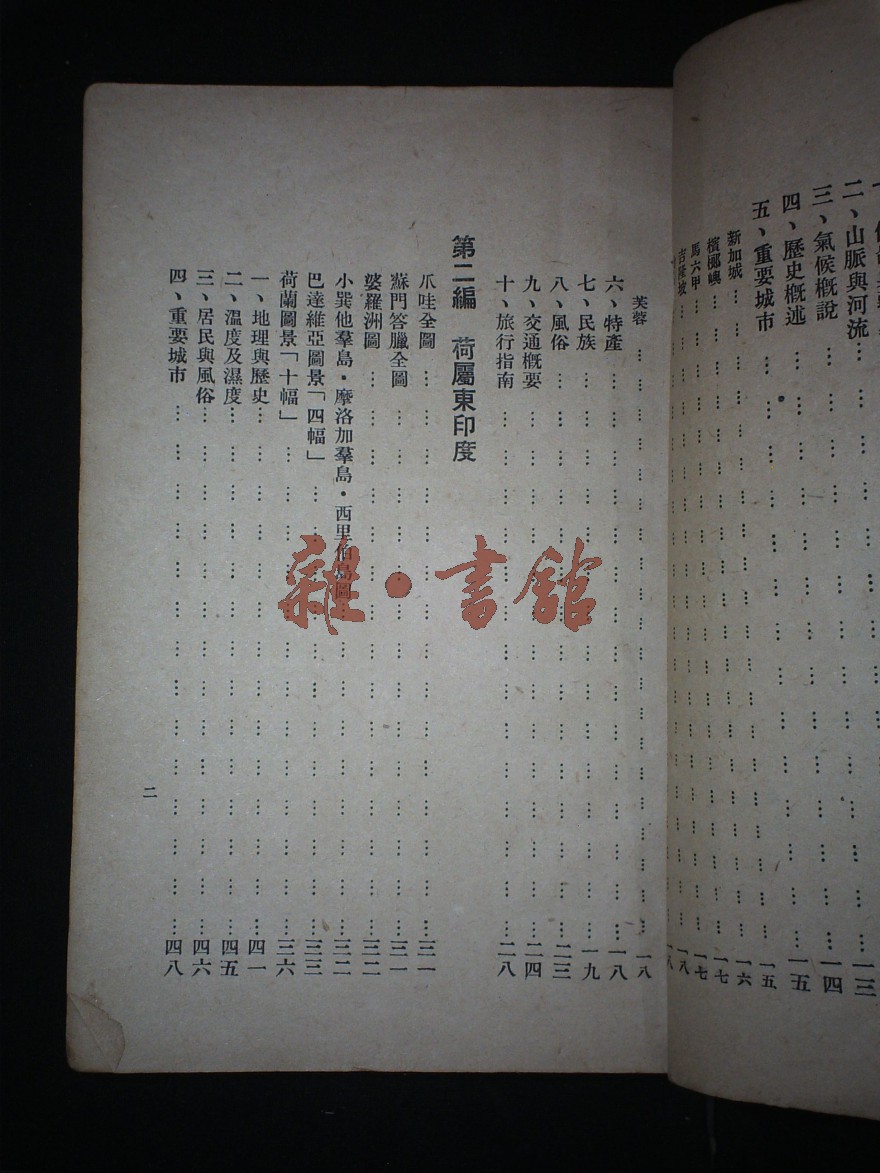 二、山脈與河流… … … … … … … … … … …一三
三、氣候概說… … … … … … … … … … …一四
四、歷史概述… … … … … … … … … … …一五
五、重要城市… … … … … … … … … … …一五
新加城… … … … … … … … … … … …一六
檳榔嶼… … … … … … … … … … … …一七
馬六甲… … … … … … … … … … … …一七
吉隆坡… … … … … … … … … … … …一八
芙蓉… … … … … … … … … … … … …一八
六、特產… … … … … … … … … … … …一八
七、民族… … … … … … … … … … … …一九
八、風俗… … … … … … … … … … … …二三
九、交通概要… … … … … … … … … … …二四
十、旅行指南… … … … … … … … … … …二八
第二編 荷屬東印度
爪哇全圖… … … … … … … … … … … …三一
蘇門答臘全圖… … … … … … … … … … …三一
婆羅洲圖… … … … … … … … … … … …三二
小巽他羣島・摩洛加羣島・西里伯島圖… … … … … …三二
巴達維亞圖景「四幅」… … … … … … … … …三三
荷蘭圖景「十幅」… … … … … … … … … …三六
一、地理與歷史… … … … … … … … … … …四一
二、溫度及濕度… … … … … … … … … … …四五
三、居民與風俗… … … … … … … … … … …四六
四、重要城市… … … … … … … … … … …四八
二
雜・書館